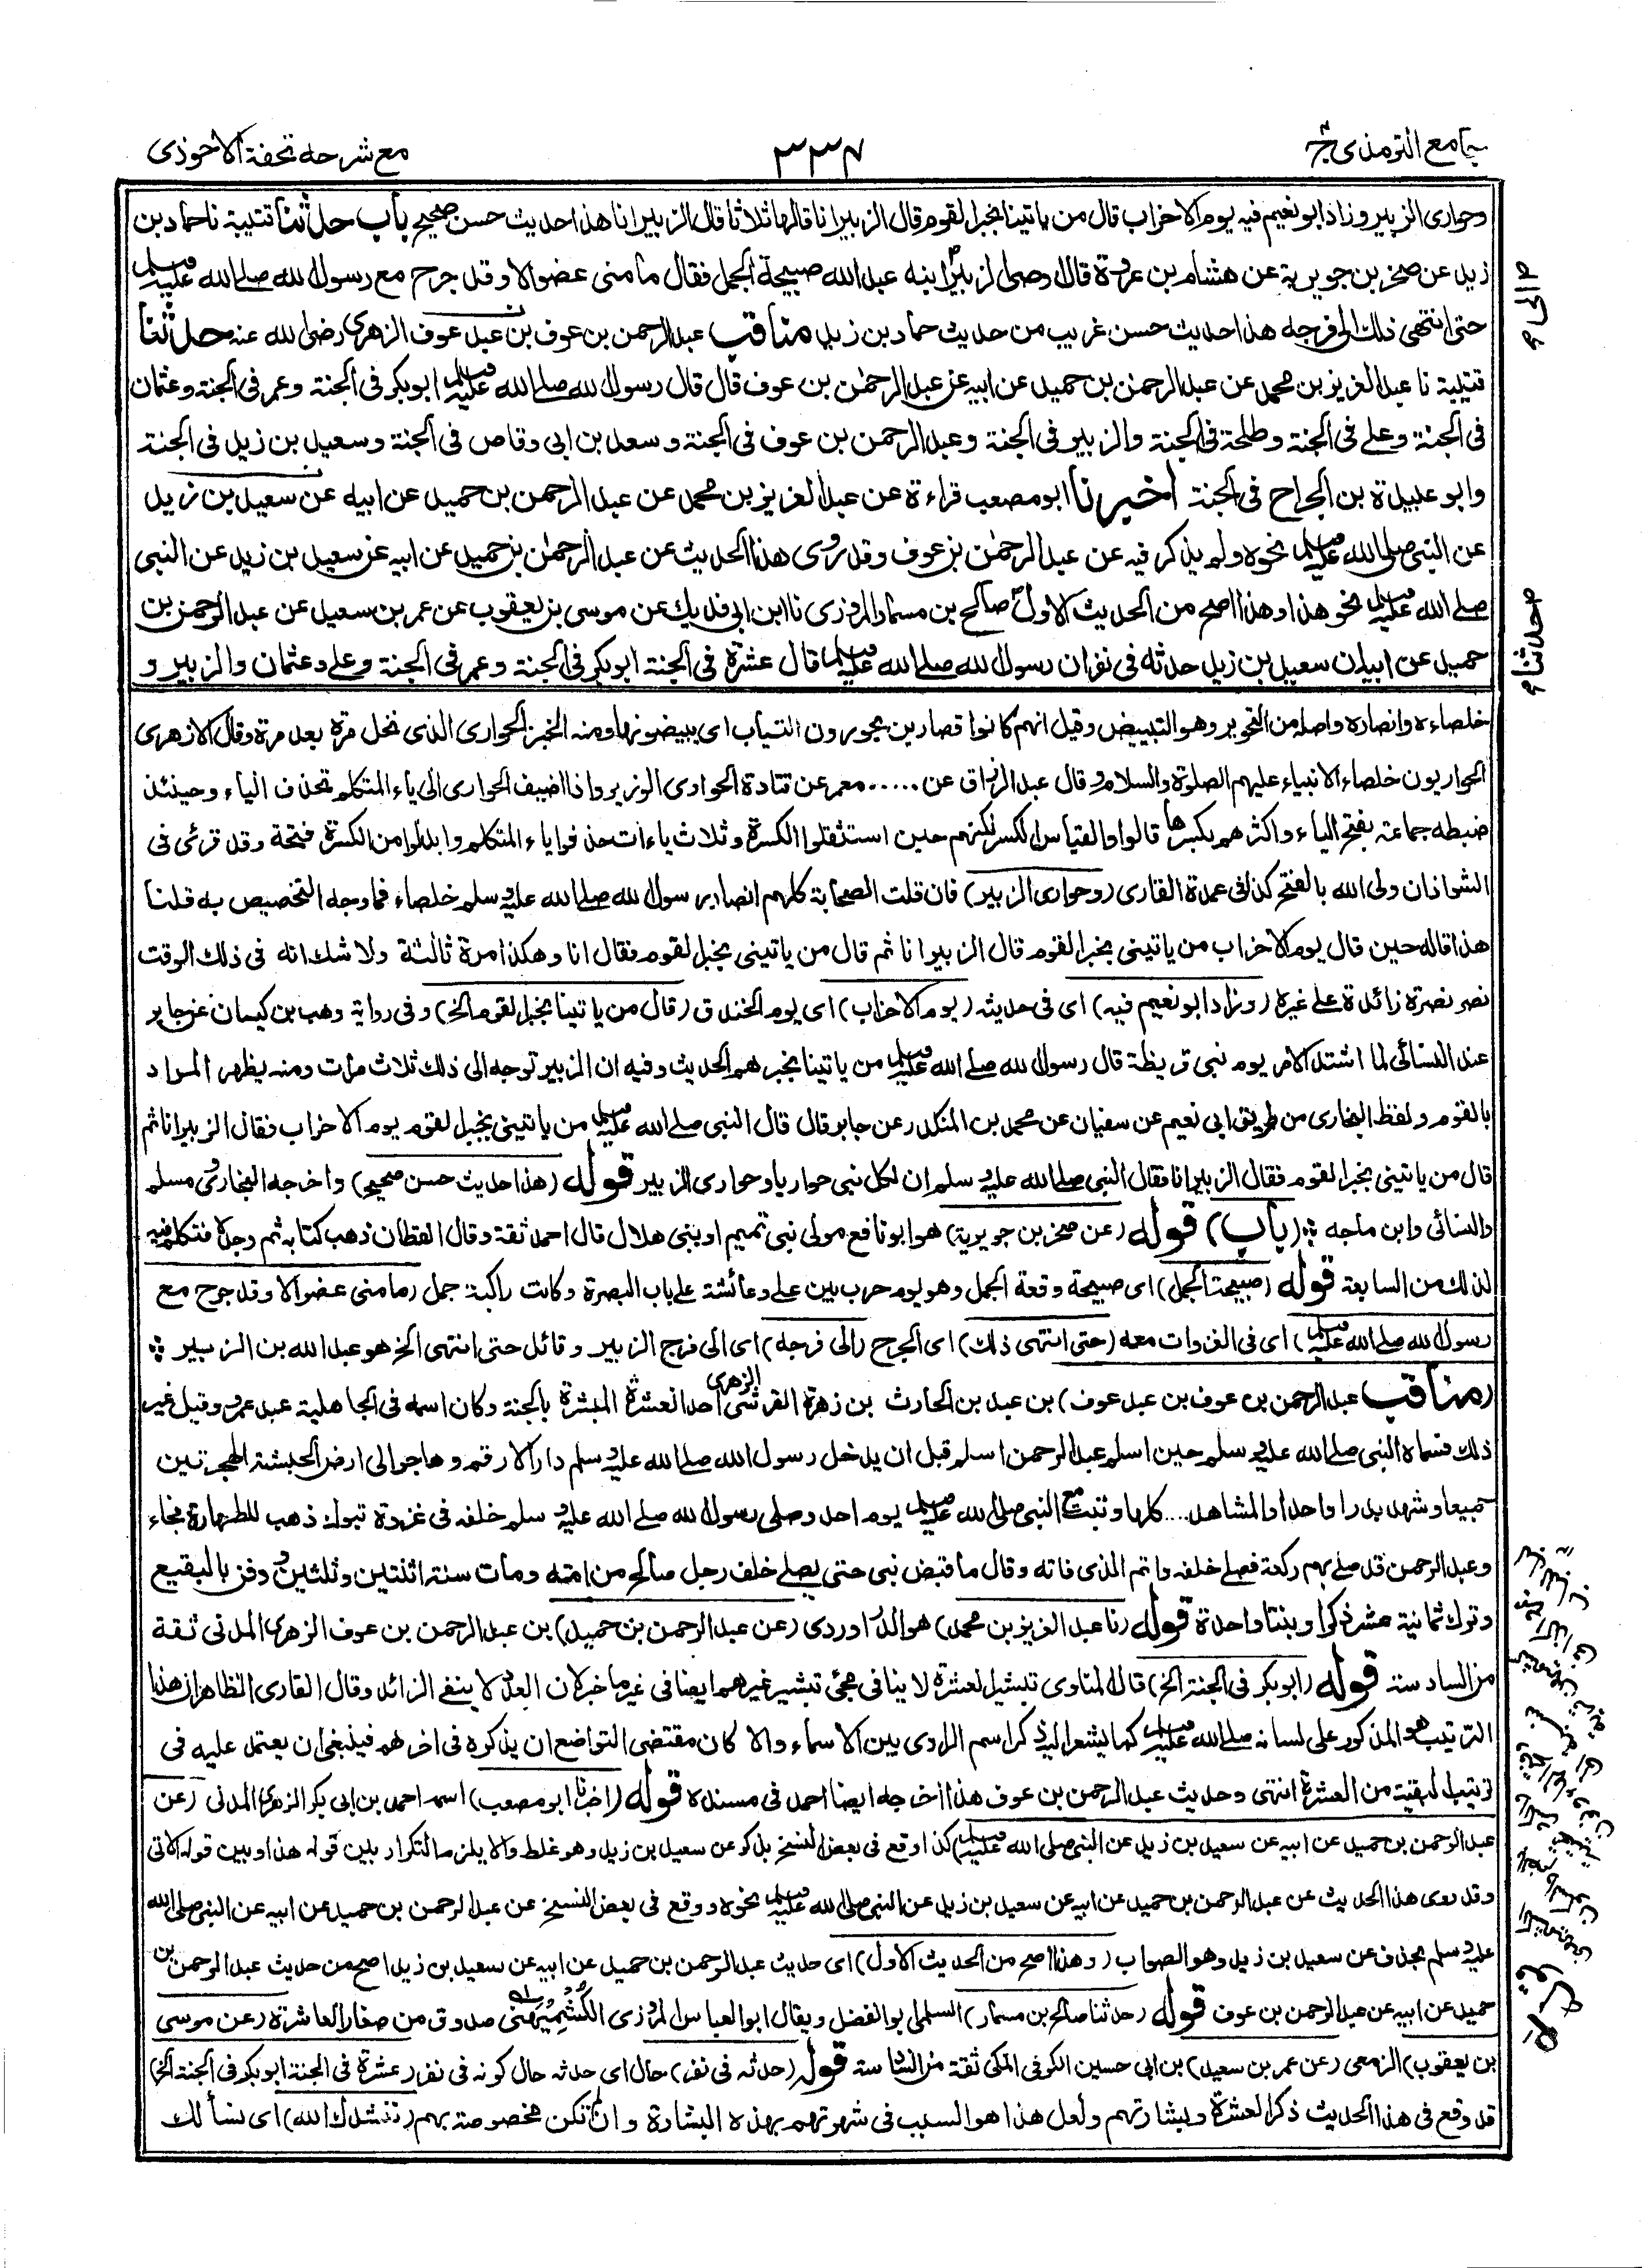 جامع الترمذی ج ٤
٣٣٤
مع شرحه تحفة الاحوذی
وحواری الزبیر وزاد ابو نعیم فیه یوم الاحزاب قال من یاتینا بخبر القوم قال الزبیر انا قالها ثلاثا قال الزبیر انا هذا حدیث حسن صحیح باب حدثنا قتیبة نا حماد بن
زید عن صخر بن جویریة عن هشام بن عروة قال اوصی الزبیر ابنه عبد الله صبیحة الجمل فقال ما منی عضو الا وقد جرح مع رسول الله صلی الله علیه وسلم
حتی انتهی ذلک الی فرجه هذا حدیث حسن غریب من حدیث حماد بن زید مناقب عبد الرحمن بن عوف بن عبد عوف الزهری رضی الله عنه حدثنا
قتیبة نا عبد العزیز بن محمد عن عبد الرحمن بن حمید عن ابیه عن عبد الرحمن بن عوف قال قال رسول الله صلی الله علیه وسلم ابو بکر فی الجنة وعمر فی الجنة وعثمان
فی الجنة وعلی فی الجنة وطلحة فی الجنة والزبیر فی الجنة وعبد الرحمن بن عوف فی الجنة وسعد بن ابی وقاص فی الجنة وسعید بن زید فی الجنة
وابو عبیدة بن الجراح فی الجنة اخبرنا ابو مصعب قراءة عن عبد العزیز بن محمد عن عبد الرحمن بن حمید عن ابیه عن سعید بن زید
عن النبی صلی الله علیه وسلم نحوه ولم یذکر فیه عن عبد الرحمن بن عوف وقد روی هذا الحدیث عن عبد الرحمن بن حمید عن ابیه عن سعید بن زید عن النبی
صلی الله علیه وسلم نحو هذا وهذا اصح من الحدیث الاول صالح بن مسمار المروزی نا ابن ابی فدیک عن موسی بن یعقوب عن عمر بن سعید عن عبد الرحمن بن
حمید عن ابیه ان سعید بن زید حدثه فی نفر ان رسول الله صلی الله علیه وسلم قال عشرة فی الجنة ابو بکر فی الجنة وعمر فی الجنة وعلی وعثمان والزبیر و
خلصاءه وانصاره واصله من التحویر وهو التبییض وقیل انهم کانوا قصارین یحورون الثیاب ای یبیضونها ومنه الخبز الحواری الذی نخل مرة بعد مرة وقال الازهری
الحواریون خلصاء الانبیاء علیهم الصلوة والسلام وقال عبد الرزاق عن ..... معمر عن قتادة الحواری الوزیر واذا اضیف الحواری الی یاء المتکلم تحذف الیاء وحینئذ
ضبطه جماعة بفتح الیاء واکثرهم بکسرها قالوا والقیاس الکسر لکنهم حین استثقلوا الکسرة وثلاث یاءات حذفوا یاء المتکلم وابدلوا من الکسرة فتحة وقد قرئی فی
الشواذ ان ولی الله بالفتح کذا فی عمدة القاری (وحواری الزبیر) فان قلت الصحابة کلهم انصار رسول الله صلی الله علیه وسلم خلصاء فما وجه التخصیص به قلنا
هذا قاله حین قال یوم الاحزاب من یاتینی بخبر القوم قال الزبیر انا ثم قال من یاتینی بخبر القوم فقال انا وهکذا مرة ثالثة ولا شک انه فی ذلک الوقت
نصر نصرة زائدة علی غیره (وزاد ابو نعیم فیه) ای فی حدیثه (یوم الاحزاب) ای یوم الخندق (قال من یاتینا بخبر القوم الخ) وفی روایة وهب بن کیسان عن جابر
عند النسائی لما اشتد الامر یوم بنی قریظة قال رسول الله صلی الله علیه وسلم من یاتینا بخبرهم الحدیث وفیه ان الزبیر توجه الی ذلک ثلاث مرات ومنه یظهر المراد
بالقوم ولفظ البخاری من طریق ابی نعیم عن سفیان عن محمد بن المنکدر عن جابر قال قال النبی صلی الله علیه وسلم من یاتینی بخبر القوم یوم الاحزاب فقال الزبیر انا ثم
قال من یاتینی بخبر القوم فقال الزبیر انا فقال النبی صلی الله علیه وسلم ان لکل نبی حواریا وحواری الزبیر قوله (هذا حدیث حسن صحیح) واخرجه البخاری ومسلم
والنسائی وابن ماجه (باب) قوله (عن صخر بن جویریة) هو ابو نافع مولی بنی تمیم او بنی هلال قال احمد ثقة وقال القطان ذهب کتابه ثم وجده فتکلم فیه
لذلک من السابعة قوله (صبیحة الجمل) ای صبیحة وقعة الجمل وهو یوم حرب بین علی وعائشة علی باب البصرة وکانت راکبة جمل (ما منی عضو الا وقد جرح مع
رسول الله صلی الله علیه وسلم) ای فی الغزوات معه (حتی انتهی ذلک) ای الجرح (الی فرجه) ای الی فرج الزبیر وقائل حتی انتهی الخ هو عبد الله بن الزبیر
(مناقب عبد الرحمن بن عوف بن عبد عوف) بن عبد بن الحارث بن زهرة القرشی الزهری احد العشرة المبشرة بالجنة وکان اسمه فی الجاهلیة عبد عمرو وقیل غیر
ذلک فسماه النبی صلی الله علیه وسلم حین اسلم عبد الرحمن اسلم قبل ان یدخل رسول الله صلی الله علیه وسلم دار الارقم وهاجر الی ارض الحبشة الهجرتین
جمیعا وشهد بدرا واحدا والمشاهد .... کلها وثبت مع النبی صلی الله علیه وسلم یوم احد وصلی رسول الله صلی الله علیه وسلم خلفه فی غزوة تبوک ذهب للطهارة فجاء
وعبد الرحمن قد صلی بهم رکعة فصلی خلفه واتم الذی فاته وقال ما قبض نبی حتی یصلی خلف رجل صالح من امته ومات سنة اثنتین وثلثین ودفن بالبقیع
وترک ثمانیة عشر ذکرا وبنتا واحدة قوله (نا عبد العزیز بن محمد) هو الدراوردی (عن عبد الرحمن بن حمید) بن عبد الرحمن بن عوف الزهری المدنی ثقة
من السادسة قوله (ابو بکر فی الجنة الخ) قال المناوی تبشیر العشرة لا ینافی مجئ تبشیر غیرهم ایضا فی غیر ما خبر لان العدد لا ینفی الزائد وقال القاری الظاهر ان هذا
الترتیب هو المذکور علی لسانه صلی الله علیه وسلم کما یشعر الیه ذکر اسم الراوی بین الاسماء والا کان مقتضی التواضع ان یذکره فی اخرهم فینبغی ان یعتمد علیه فی
ترتیب البقیة من العشرة انتهی وحدیث عبد الرحمن بن عوف هذا اخرجه ایضا احمد فی مسنده قوله (اخبرنا ابو مصعب) اسمه احمد بن ابی بکر الزهری المدنی (عن
عبد الرحمن بن حمید عن ابیه عن سعید بن زید عن النبی صلی الله علیه وسلم) کذا وقع فی بعض النسخ بذکر عن سعید بن زید وهو غلط والا یلزم التکرار بین قوله هذا وبین قوله الاتی
وقد روی هذا الحدیث عن عبد الرحمن بن حمید عن ابیه عن سعید بن زید عن النبی صلی الله علیه وسلم نحوه ووقع فی بعض النسخ عن عبد الرحمن بن حمید عن ابیه عن النبی صلی الله
علیه وسلم بحذف عن سعید بن زید وهو الصواب (وهذا اصح من الحدیث الاول) ای حدیث عبد الرحمن بن حمید عن ابیه عن سعید بن زید اصح من حدیث عبد الرحمن بن
حمید عن ابیه عن عبد الرحمن بن عوف قوله (حدثنا صالح بن مسمار) السلمی ابو الفضل ویقال ابو العباس المروزی الکشمیهنی صدوق من صغار العاشرة (عن موسی
بن یعقوب) الزمعی (عن عمر بن سعید) بن ابی حسین الکوفی المکی ثقة من السادسة قوله (حدثه فی نفر) حال ای حدثه حال کونه فی نفر (عشرة فی الجنة ابو بکر فی الجنة الخ)
قد وقع فی هذا الحدیث ذکر العشرة وبشارتهم ولعل هذا هو السبب فی شهرتهم بهذه البشارة وان لم تکن مخصوصة بهم (ننشدک الله) ای نسألک
حدثنا